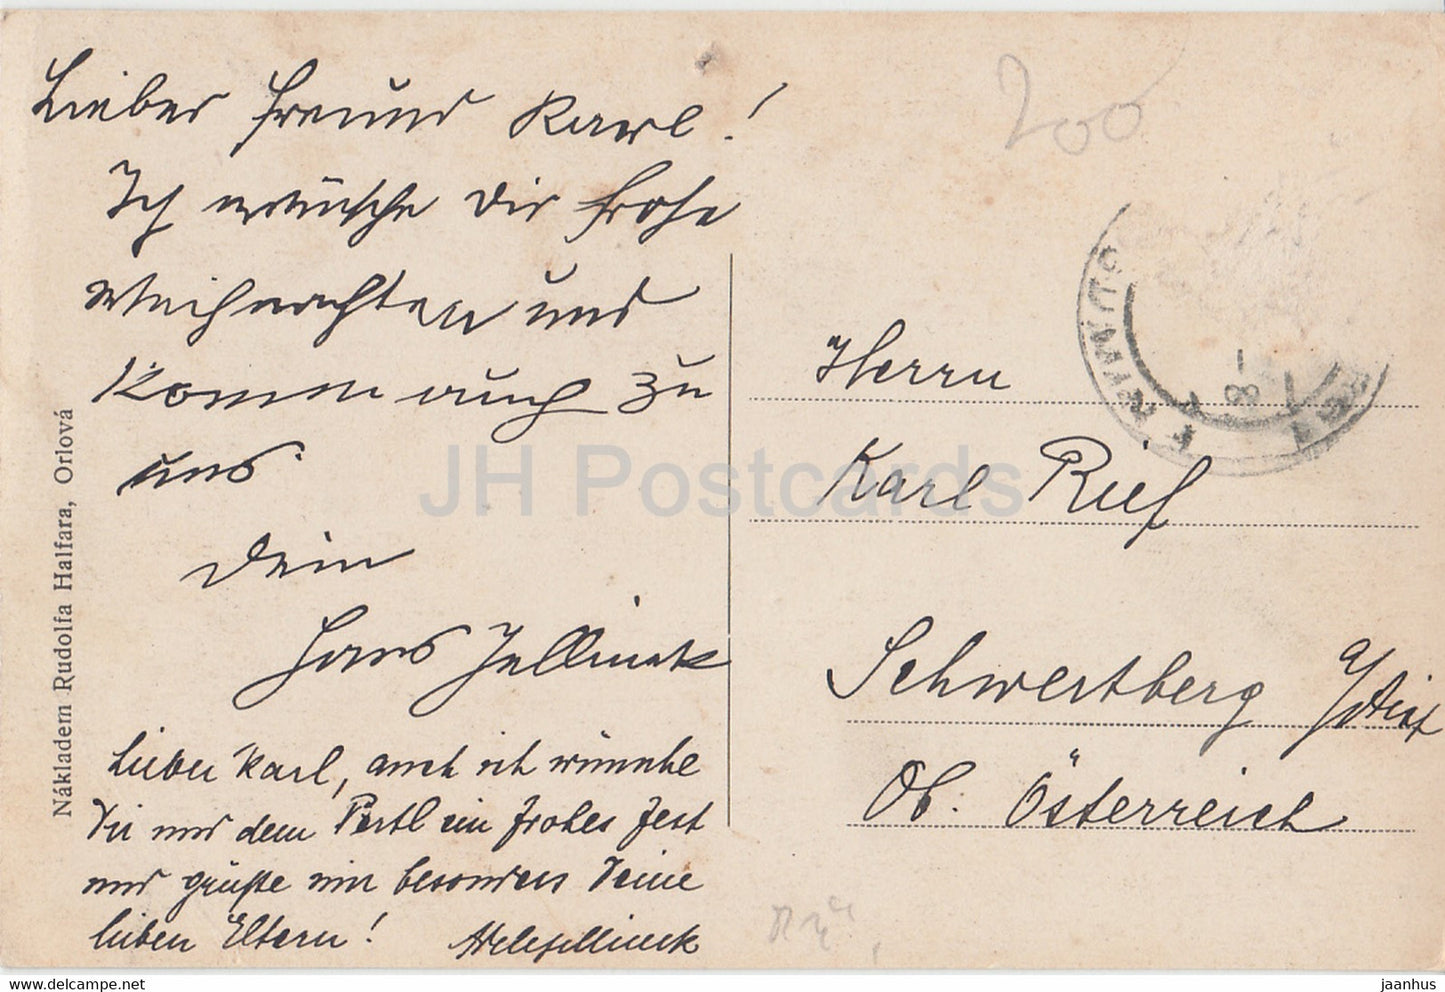 Lieber Freund Karl!
Ich wünsche Dir frohe
Weihnachten und
Komm auch zu
uns.
Dein
Hans Jellinek
Lieber Karl, auch ich wünsche
Dir und dem Pertl ein frohes Fest
und grüße mir besonders Deine
lieben Eltern!
200
Herrn
Karl Rief
Schwertberg a/Aist
Ob. Österreich
Nákladem Rudolfa Halfara, Orlová
JH Postcards
delcampe.net
jaanhus